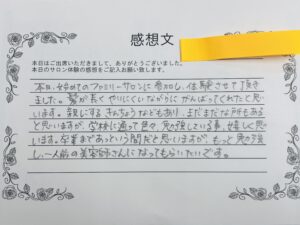 感想文
本日はご出席いただきまして、ありがとうございました。
本日のサロン体験の感想をご記入お願い致します。
本日、始めてのファミリーサロンに参加し、体験させて頂き
ました。髪が長くやりにくいながらにがんばってくれたと思
います。親にするきんちょうなどもあり、まだまだな所もある
と思いますが、学校に通って色々、勉強している事、嬉しく思
います。卒業まであっという間だと思いますが、もっと勉強
し、一人前の美容師さんになってもらいたいです。